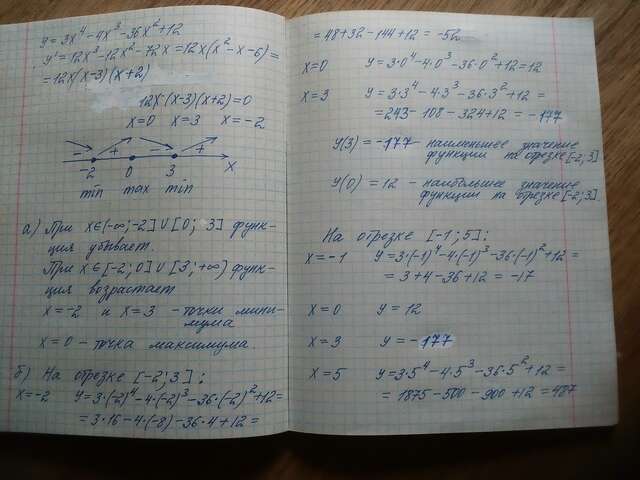 y=3x⁴-4x³-36x²+12
y'=12x³-12x²-72x=12x(x²-x-6)=
=12x(x-3)(x+2)
12x·(x-3)(x+2)=0
x=0 x=3 x=-2
- + - + x
-2 0 3
min max min
а) При x∈(-∞;-2]∪[0; 3] функ-
ция убывает.
При x∈[-2;0]∪[3;+∞) функ-
ция возрастает
x=-2 и x=3 - точки мини-
мума
x=0 - точка максимума.
б) На отрезке [-2;3]:
x=-2 y=3·(-2)⁴-4·(-2)³-36·(-2)²+12=
=3·16-4·(-8)-36·4+12=
=48+32-144+12=-52
x=0 y=3·0⁴-4·0³-36·0²+12=12
x=3 y=3·3⁴-4·3³-36·3²+12=
=243-108-324+12=-177
y(3)=-177 - наименьшее значение
функции на отрезке [-2;3]
y(0)=12 - наибольшее значение
функции на отрезке [-2;3].
На отрезке [-1;5]:
x=-1 y=3·(-1)⁴-4·(-1)³-36·(-1)²+12=
=3+4-36+12=-17
x=0 y=12
x=3 y=-177
x=5 y=3·5⁴-4·5³-36·5²+12=
=1875-500-900+12=487